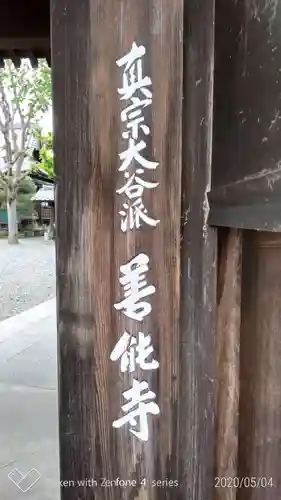 真宗大谷派
善能寺
Taken with Zenfone 4 series
2020/05/04